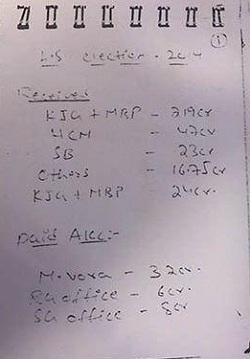 ①
L.S election - 2014
Received
KJG + MBP - 219cr
HCM - 47cr
SB - 23cr
Others - 16.75cr
KJG + MBP - 24cr.
Paid AICC:-
M. Vora - 32cr.
RG office - 6cr.
SG office - 8cr